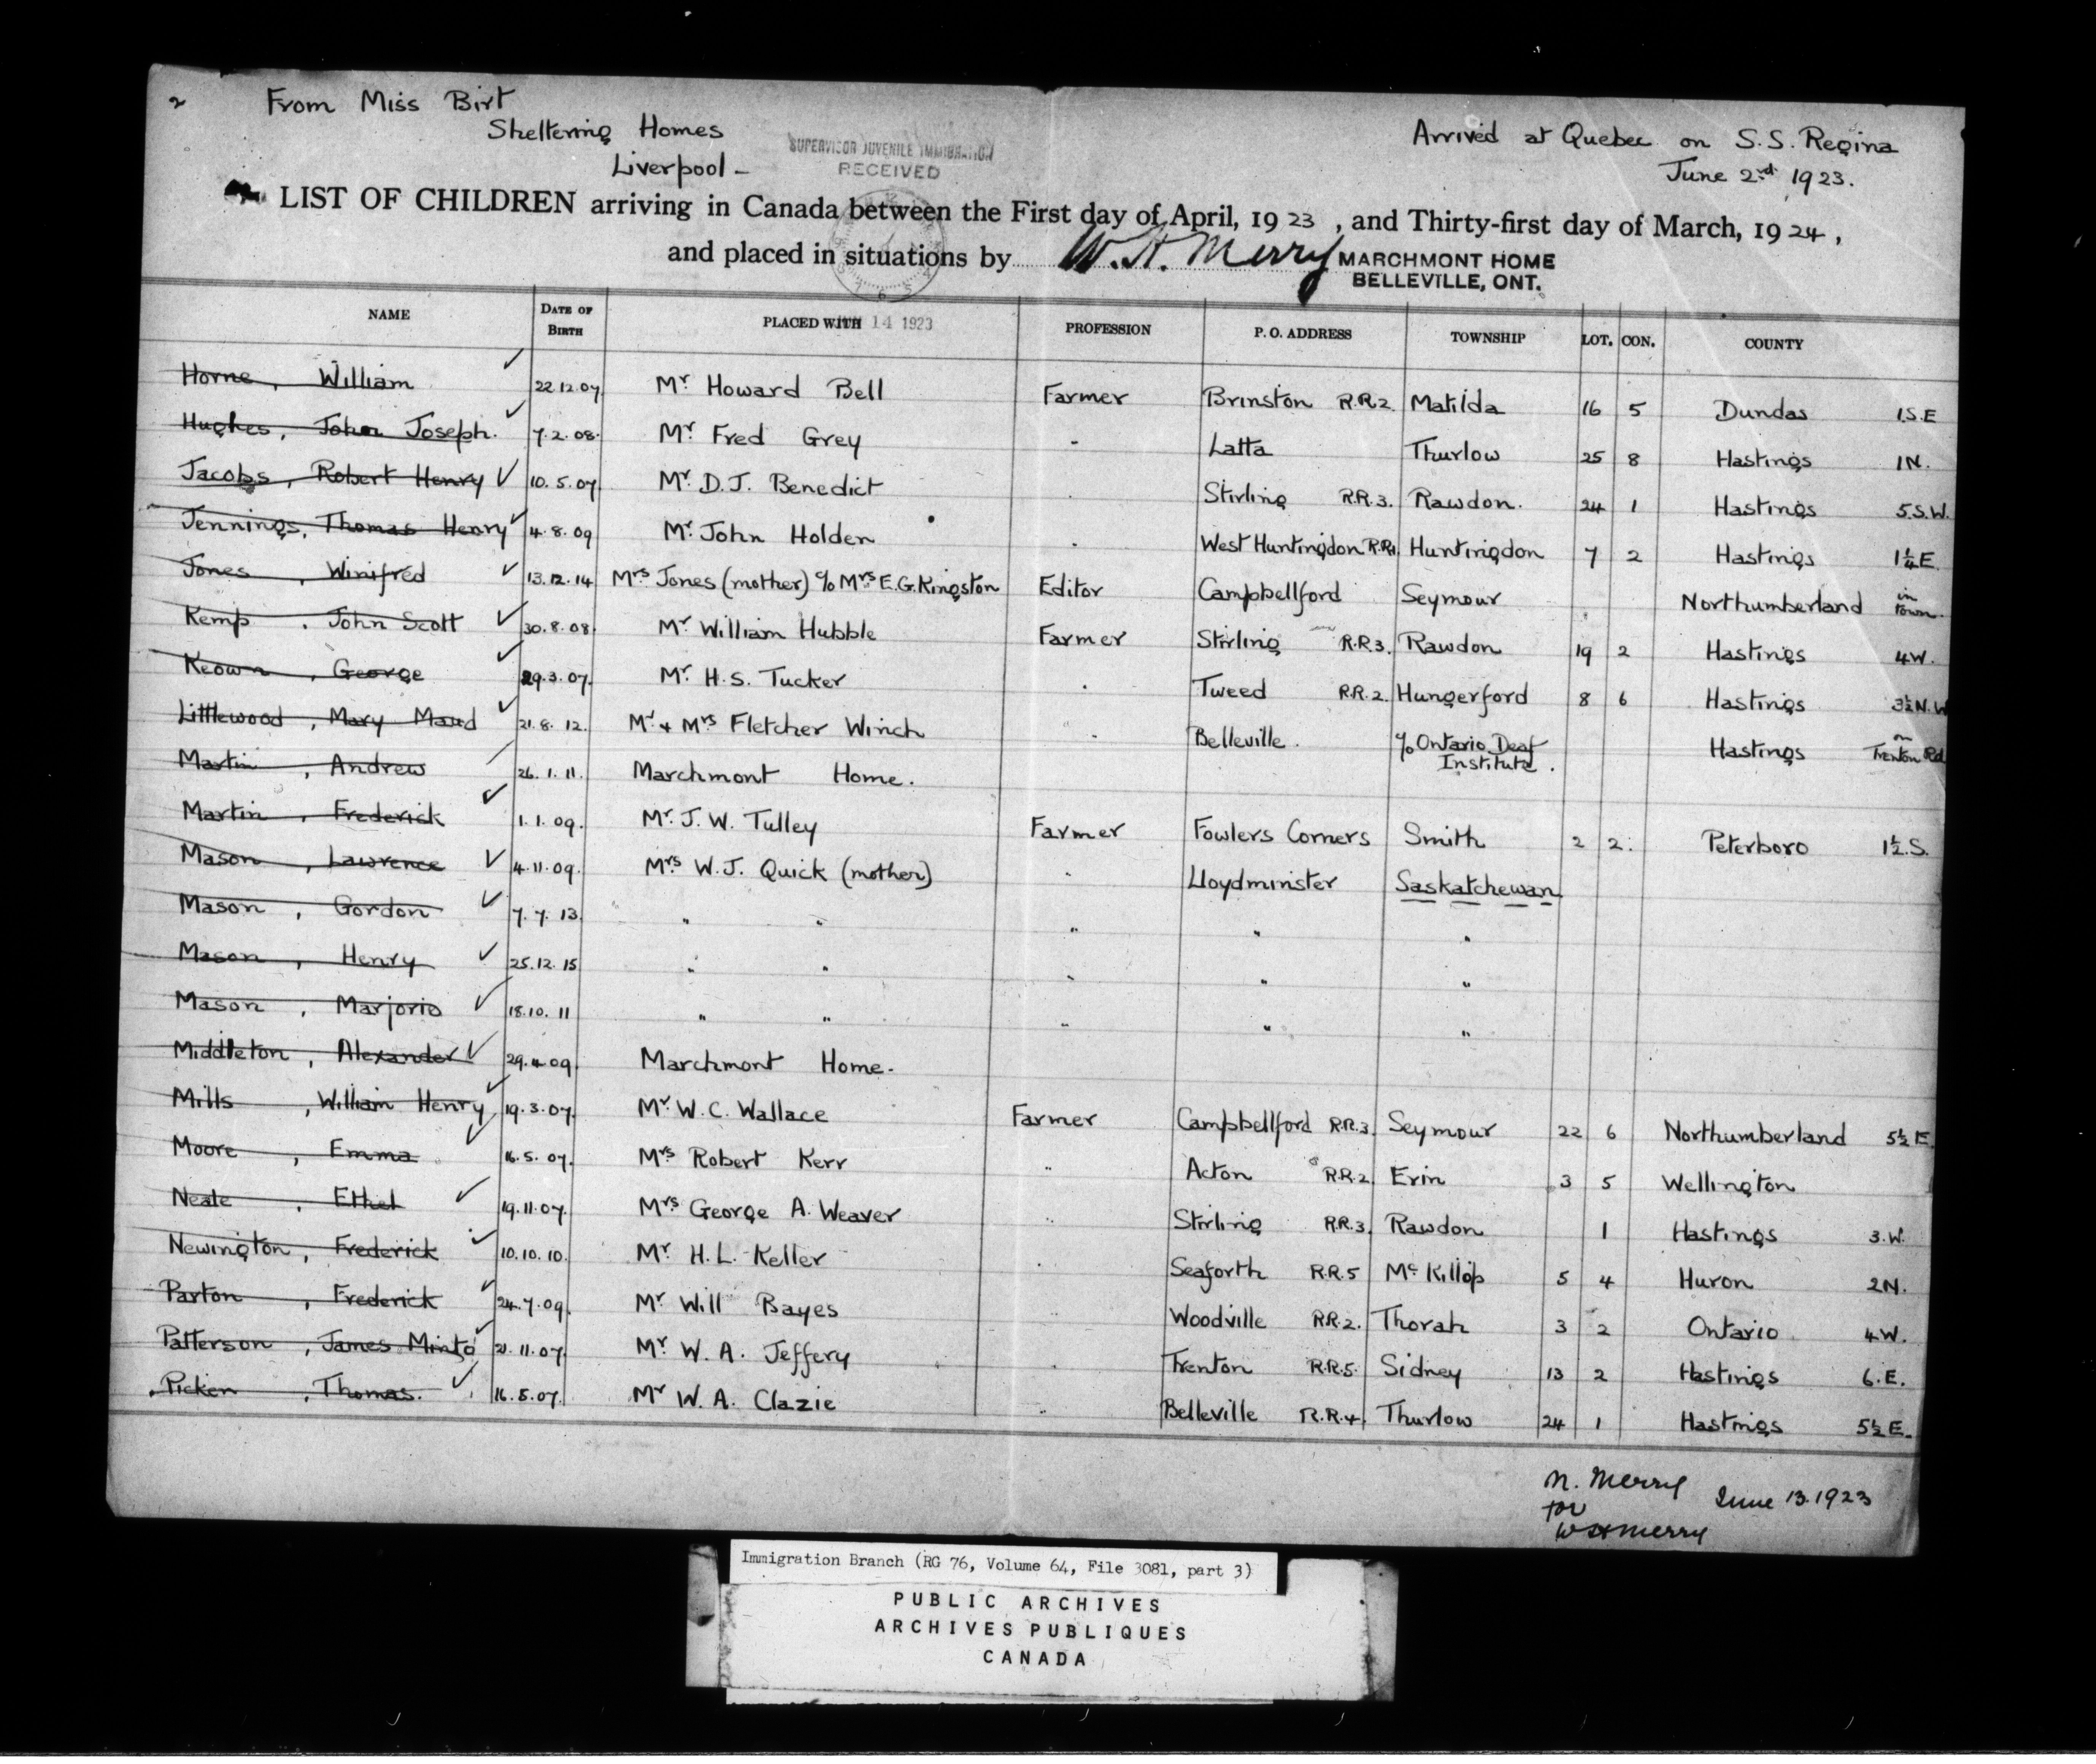 2 From Miss Birt
Sheltering Homes
Liverpool -
SUPERVISOR JUVENILE IMMIGRATION
RECEIVED
Arrived at Quebec on S.S. Regina
June 2nd 1923.
LIST OF CHILDREN arriving in Canada between the First day of April, 1923, and Thirty-first day of March, 1924,
and placed in situations by W. H. Merry MARCHMONT HOME
BELLEVILLE, ONT.
NAME DATE OF BIRTH PLACED WITH 14 1923 PROFESSION P. O. ADDRESS TOWNSHIP LOT. CON. COUNTY
Horne, William 22.12.07. Mr. Howard Bell Farmer Brinston R.R.2. Matilda 16 5 Dundas 1.S.E
Hughes, John Joseph. 7.2.08. Mr. Fred Grey " Latta Thurlow 25 8 Hastings 1N.
Jacobs, Robert Henry 10.5.07. Mr. D.J. Benedict " Stirling R.R.3. Rawdon. 24 1 Hastings 5.S.W.
Jennings, Thomas Henry 4.8.09 Mr. John Holden " West Huntingdon R.R.1. Huntingdon 7 2 Hastings 1¼E.
Jones, Winifred 13.12.14 Mrs Jones (mother) c/o Mrs E.G. Kingston Editor Campbellford Seymour Northumberland in Town.
Kemp, John Scott 30.8.08. Mr. William Hubble Farmer Stirling R.R.3. Rawdon 19 2 Hastings 4W.
Keown, George 29.3.07. Mr. H.S. Tucker " Tweed R.R.2. Hungerford 8 6 Hastings 3½N.W
Littlewood, Mary Maud 21.8.12. Mr. & Mrs Fletcher Winch " Belleville. c/o Ontario Deaf Institute. Hastings on Trenton Rd
Martin, Andrew 26.1.11. Marchmont Home.
Martin, Frederick 1.1.09. Mr. J.W. Tulley Farmer Fowlers Corners Smith 2 2. Peterboro 1½.S.
Mason, Lawrence 4.11.09. Mrs W.J. Quick (mother) " Lloydminster Saskatchewan
Mason, Gordon 7.7.13. " " " " "
Mason, Henry 25.12.15 " " " " "
Mason, Marjorie 18.10.11 " " " " "
Middleton, Alexander 29.4.09. Marchmont Home.
Mills, William Henry 19.3.07. Mr. W.C. Wallace Farmer Campbellford R.R.3. Seymour 22 6 Northumberland 5½E.
Moore, Emma 16.5.07. Mrs Robert Kerr " Acton R.R.2. Erin 3 5 Wellington
Neale, Ethel 19.11.07. Mrs George A. Weaver " Stirling R.R.3. Rawdon 1 Hastings 3.W.
Newington, Frederick 10.10.10. Mr. H.L. Keller " Seaforth R.R.5 McKillop 5 4 Huron 2N.
Parton, Frederick 24.7.09. Mr. Will Bayes " Woodville R.R.2. Thorah 3 2 Ontario 4W.
Patterson, James Minto 21.11.07. Mr. W.A. Jeffery " Trenton R.R.5. Sidney 13 2 Hastings 6.E.
Picken, Thomas. 16.5.07. Mr W.A. Clazie " Belleville R.R.4. Thurlow 24 1 Hastings 5½E.
M. Merry June 13.1923
for
W H Merry
Immigration Branch (RG 76, Volume 64, File 3081, part 3)
PUBLIC ARCHIVES
ARCHIVES PUBLIQUES
CANADA